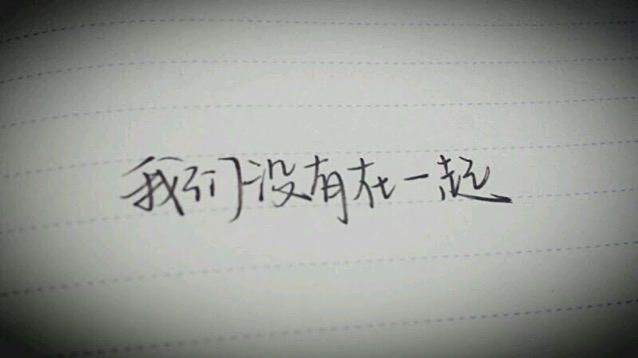 我们没有在一起